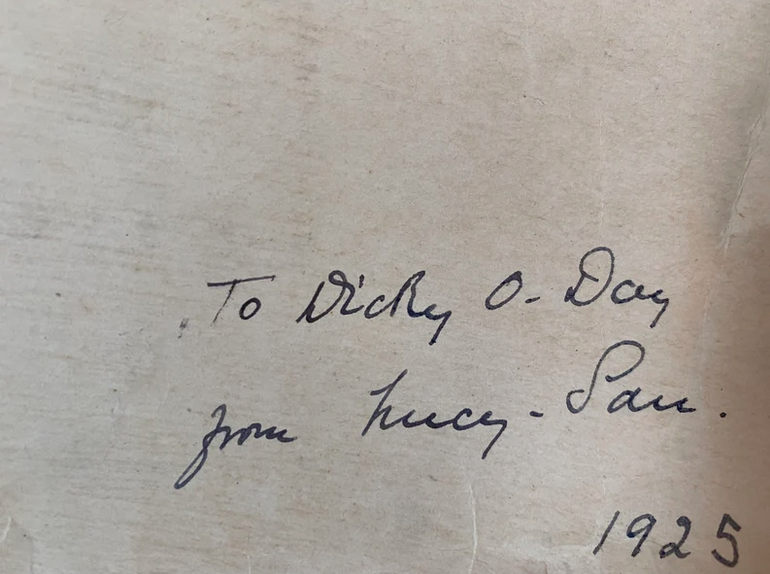 To Dicky O-Day
from Lucy-San.
1925